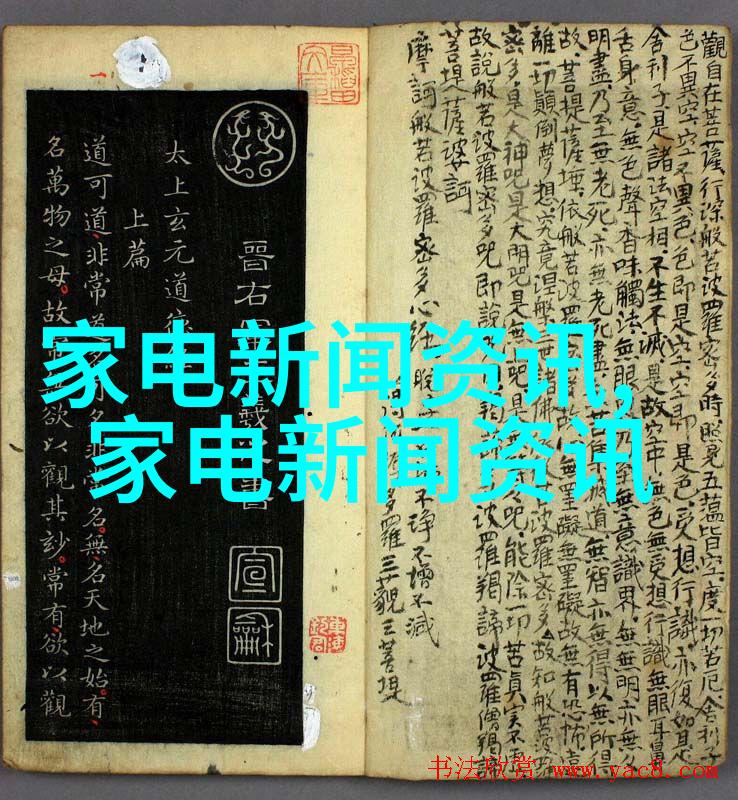 家电新闻资讯,
家电新闻资讯
觀自在菩薩行深般若波羅密多時照見五蘊皆空度一切苦厄舍利子
色不異空空不異色色即是空空即是色受想行識亦復如是
舍利子是諸法空相不生不滅是故空中無色無受想行識無眼耳鼻
舌身意無色聲香味觸法無眼乃至無意識界無無明亦無
明盡乃至無老死亦無老死盡道無智亦無得以無所得
故菩提薩埵依般若波羅故無罣礙無罣礙故無有恐怖遠
離一切顛倒夢想究竟涅般世諸佛波羅密多故知般若波
密多是大神咒是大明咒是無上咒是咒能除一切苦真實不
故說般若波羅密多咒即說羯諦波羅羯諦波羅僧羯諦
菩提薩婆訶
摩訶般若波羅密多心经不淨不增不減
多羅三藐三菩提
晉右書
宣
龢
太上玄元道德
上篇
道可道非常道名非常名無名天地之始有
名萬物之母故常無欲以觀其玅常有欲以觀
书法欣赏 www.yac8.com